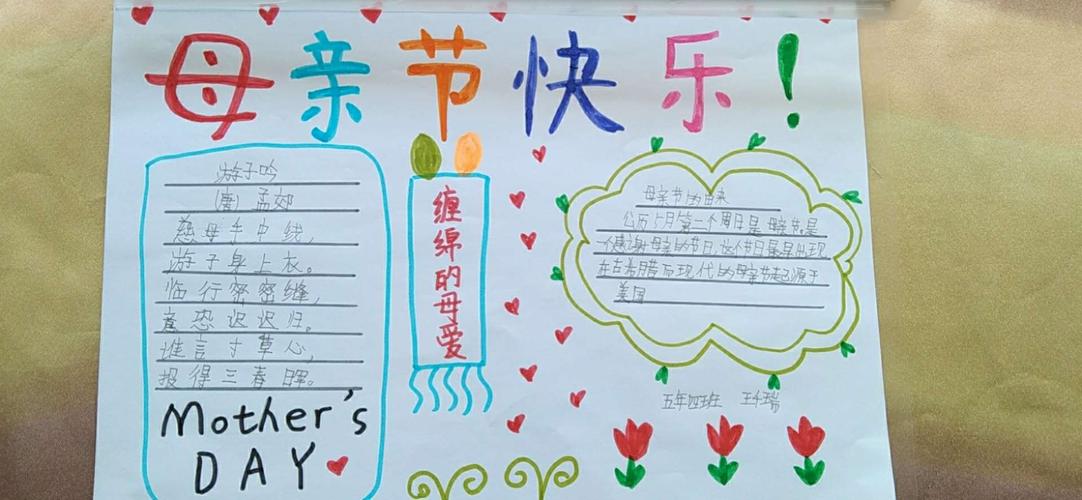 母亲节快乐!
游子吟
(唐) 孟郊
慈母手中线,
游子身上衣。
临行密密缝,
意恐迟迟归。
谁言寸草心,
报得三春晖。
Mother's
DAY
缠绵的母爱
母亲节的由来
公历5月第二个周日是母亲节,是
一个感谢母亲的节日,这个节日最早出现
在古希腊而现代的母亲节起源于
美国
五年四班 王千瑞